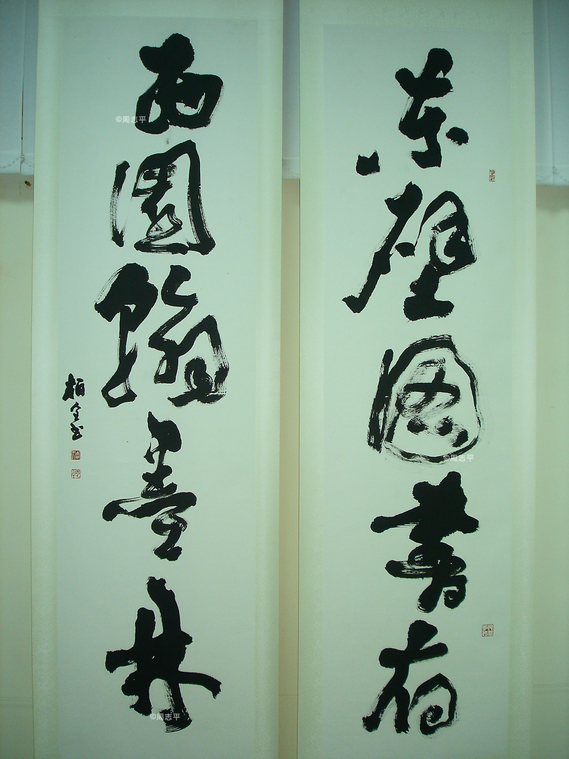 东壁图书府
西园翰墨林
柏全书
©周志平
©周志平
©周志平